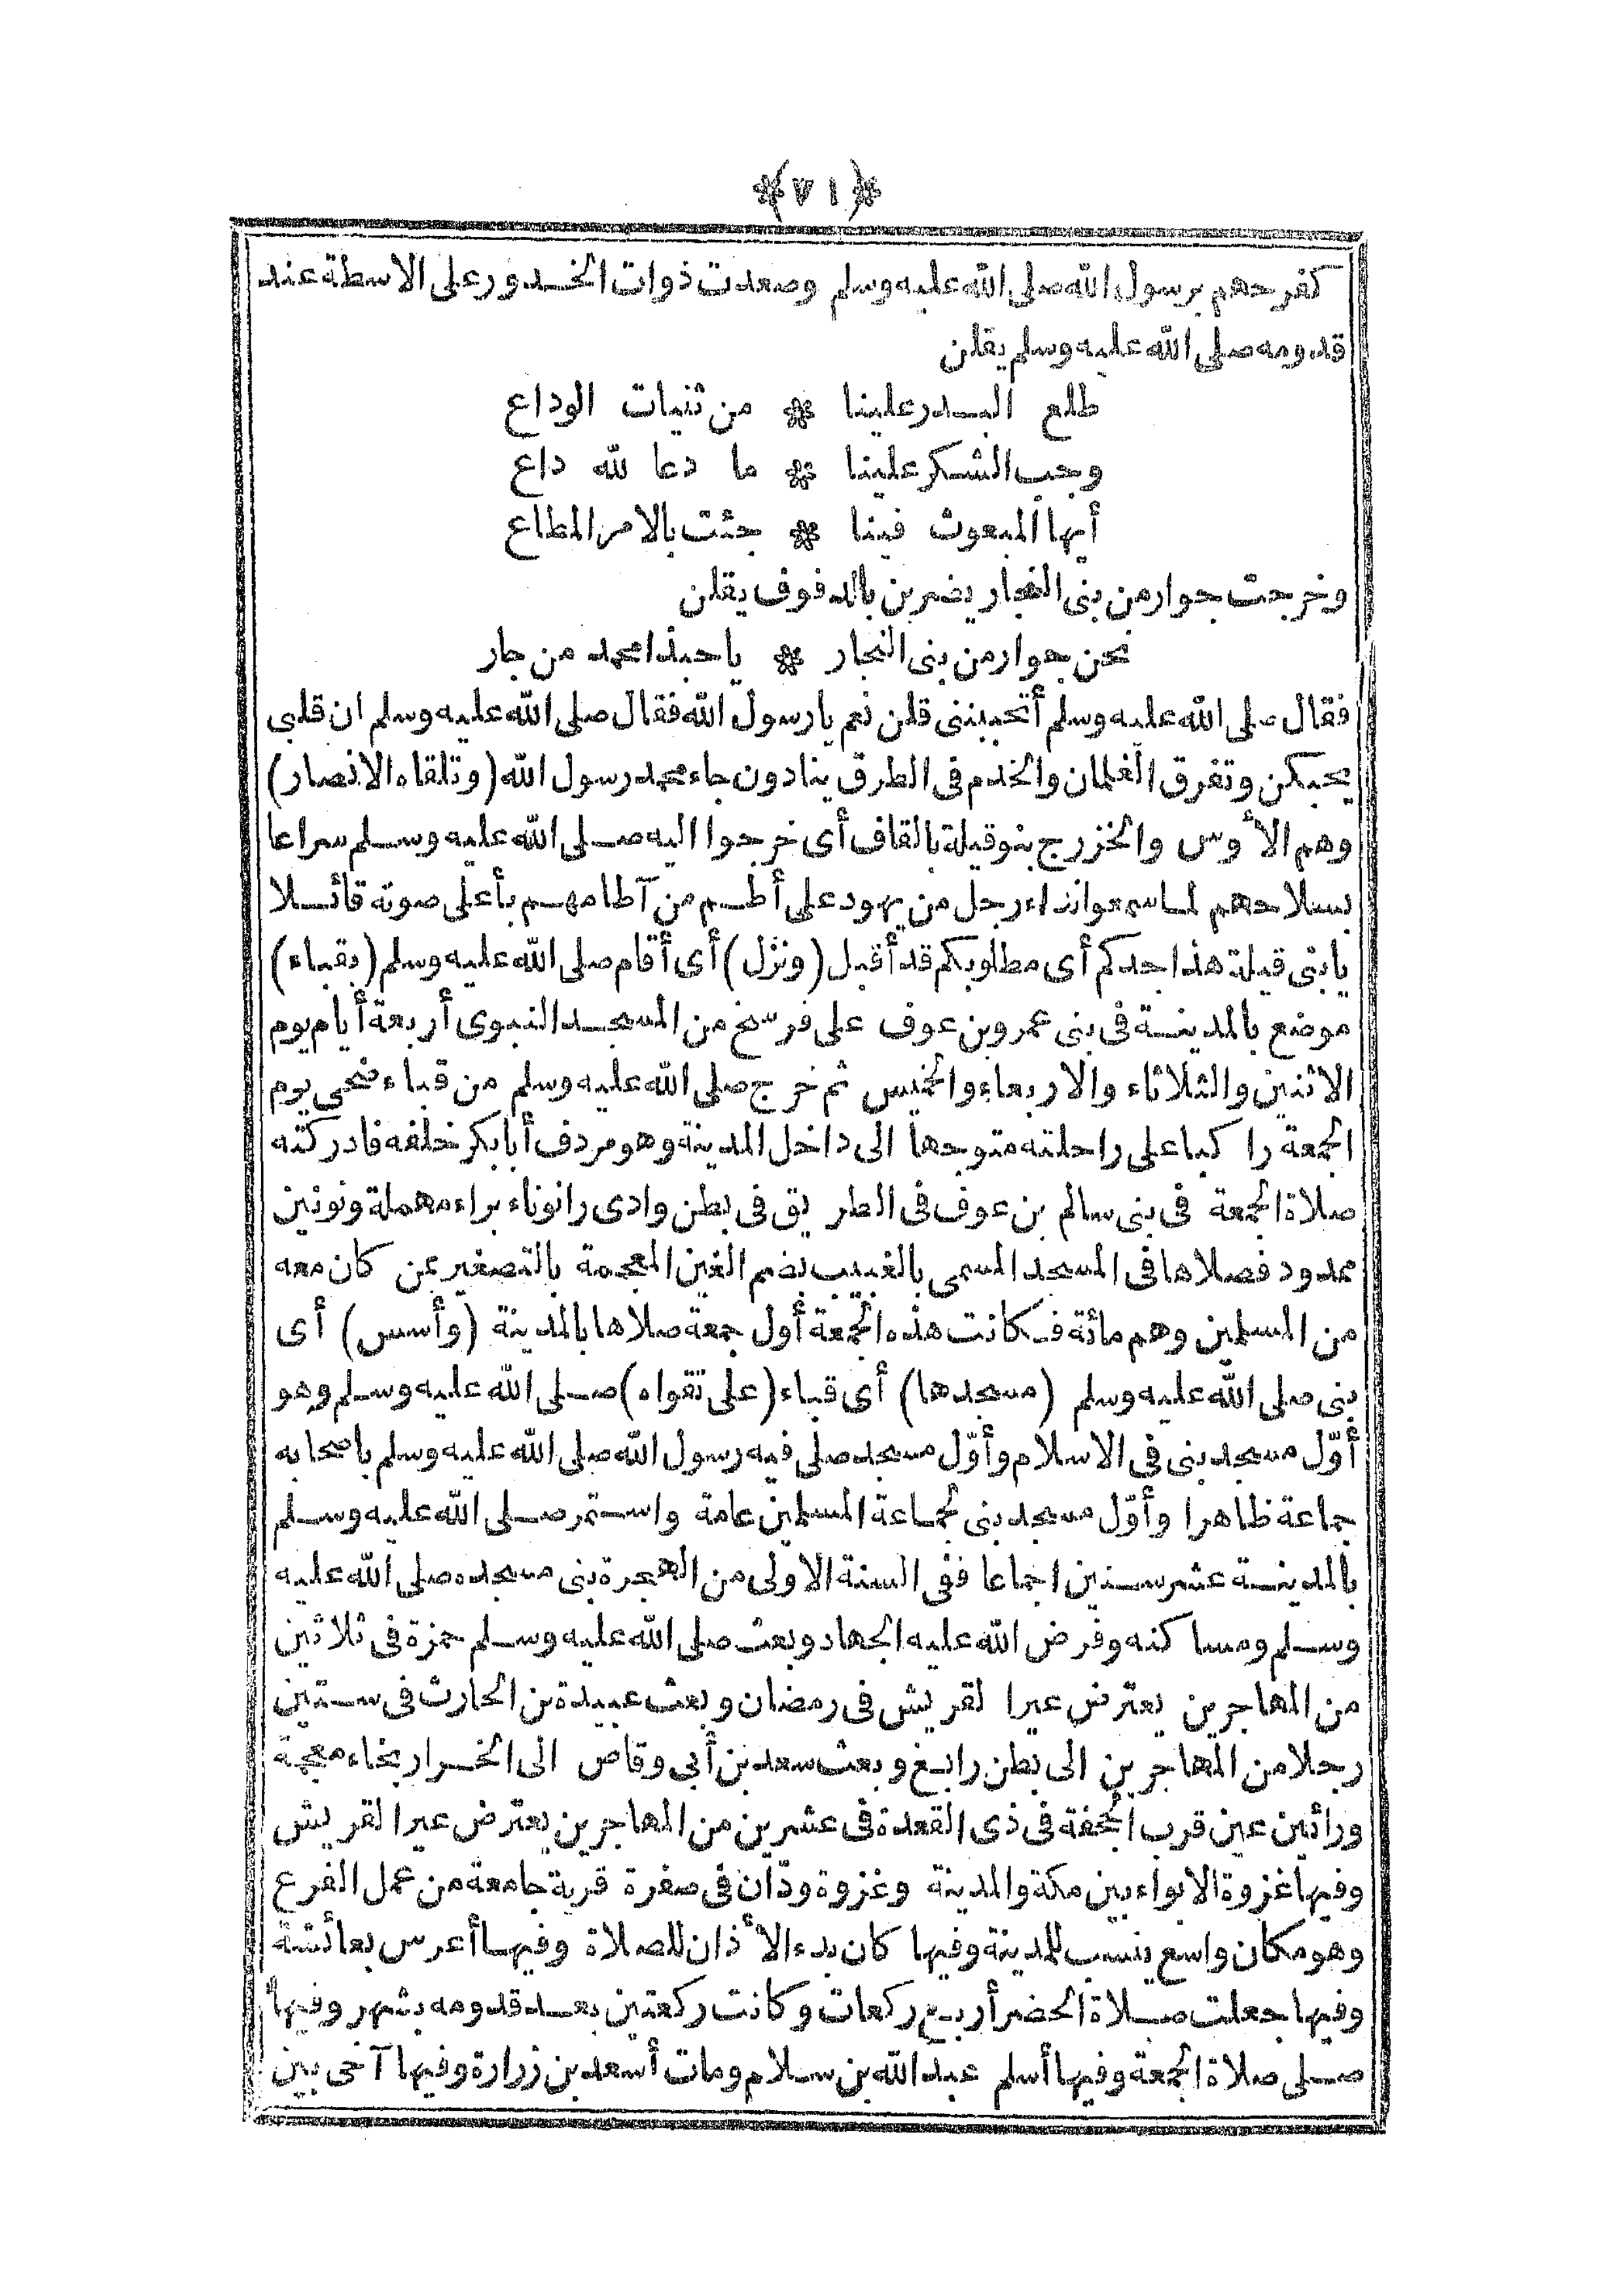 ﴿٧١﴾
كفرحهم برسول الله صلى الله عليه وسلم وصعدت ذوات الخدور على الاسطة عند
قدومه صلى الله عليه وسلم يقلن
طلع البدر علينا * من ثنيات الوداع
وجب الشكر علينا * ما دعا لله داع
أيها المبعوث فينا * جئت بالامر المطاع
وخرجت جوار من بنى النجار يضربن بالدفوف يقلن
نحن جوار من بنى النجار * يا حبذا محمد من جار
فقال صلى الله عليه وسلم أتحببننى قلن نعم يا رسول الله فقال صلى الله عليه وسلم ان قلبى
يحبكن وتفرق الغلمان والخدم فى الطرق ينادون جاء محمد رسول الله (وتلقاه الانصار)
وهم الأوس والخزرج بنو قيلة بالقاف أى خرجوا اليه صلى الله عليه وسلم سراعا
بسلاحهم لما سمعوا نداء رجل من يهود على أطم من آطامهم بأعلى صوته قائلا
يا بنى قيلة هذا جدكم أى مطلوبكم قد أقبل (ونزل) أى أقام صلى الله عليه وسلم (بقباء)
موضع بالمدينة فى بنى عمرو بن عوف على فرسخ من المسجد النبوى أربعة أيام يوم
الاثنين والثلاثاء والاربعاء والخميس ثم خرج صلى الله عليه وسلم من قباء ضحى يوم
الجمعة راكبا على راحلته متوجها الى داخل المدينة وهو مردف أبابكر خلفه فادركته
صلاة الجمعة فى بنى سالم بن عوف فى الطريق فى بطن وادى رانوناء براء مهملة ونونين
ممدود فصلاها فى المسجد المسمى بالغبيب بضم الغين المعجمة بالتصغير بمن كان معه
من المسلمين وهم مائة فكانت هذه الجمعة أول جمعة صلاها بالمدينة (وأسس) أى
بنى صلى الله عليه وسلم (مسجدها) أى قباء (على تقواه) صلى الله عليه وسلم وهو
أوّل مسجد بنى فى الاسلام وأوّل مسجد صلى فيه رسول الله صلى الله عليه وسلم باصحابه
جماعة ظاهرا وأوّل مسجد بنى لجماعة المسلمين عامة واستمر صلى الله عليه وسلم
بالمدينة عشر سنين اجماعا ففى السنة الاولى من الهجرة بنى مسجده صلى الله عليه
وسلم ومساكنه وفرض الله عليه الجهاد وبعث صلى الله عليه وسلم حمزة فى ثلاثين
من المهاجرين يعترض عيرا لقريش فى رمضان وبعث عبيدة بن الحارث فى ستين
رجلا من المهاجرين الى بطن رابغ وبعث سعد بن أبى وقاص الى الخرار بخاء معجمة
ورائين عين قرب الجحفة فى ذى القعدة فى عشرين من المهاجرين يعترض عيرا لقريش
وفيها غزوة الابواء بين مكة والمدينة وغزوة ودّان فى صفرة قرية جامعة من عمل الفرع
وهو مكان واسع ينسب للمدينة وفيها كان بدء الأذان للصلاة وفيها أعرس بعائشة
وفيها جعلت صلاة الحضر أربع ركعات وكانت ركعتين بعد قدومه بشهر وفيها
صلى صلاة الجمعة وفيها أسلم عبد الله بن سلام ومات أسعد بن زرارة وفيها آخى بين